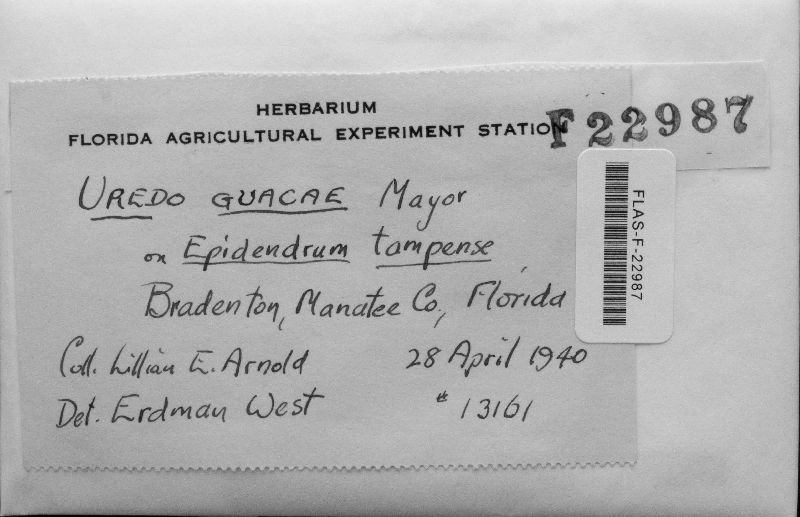 HERBARIUM
FLORIDA AGRICULTURAL EXPERIMENT STATION
F22987
UREDO GUACAE Mayor
on Epidendrum tampense
Bradenton, Manatee Co., Florida
Coll. Lillian E. Arnold 28 April 1940
Det. Erdman West # 13161
FLAS-F-22987